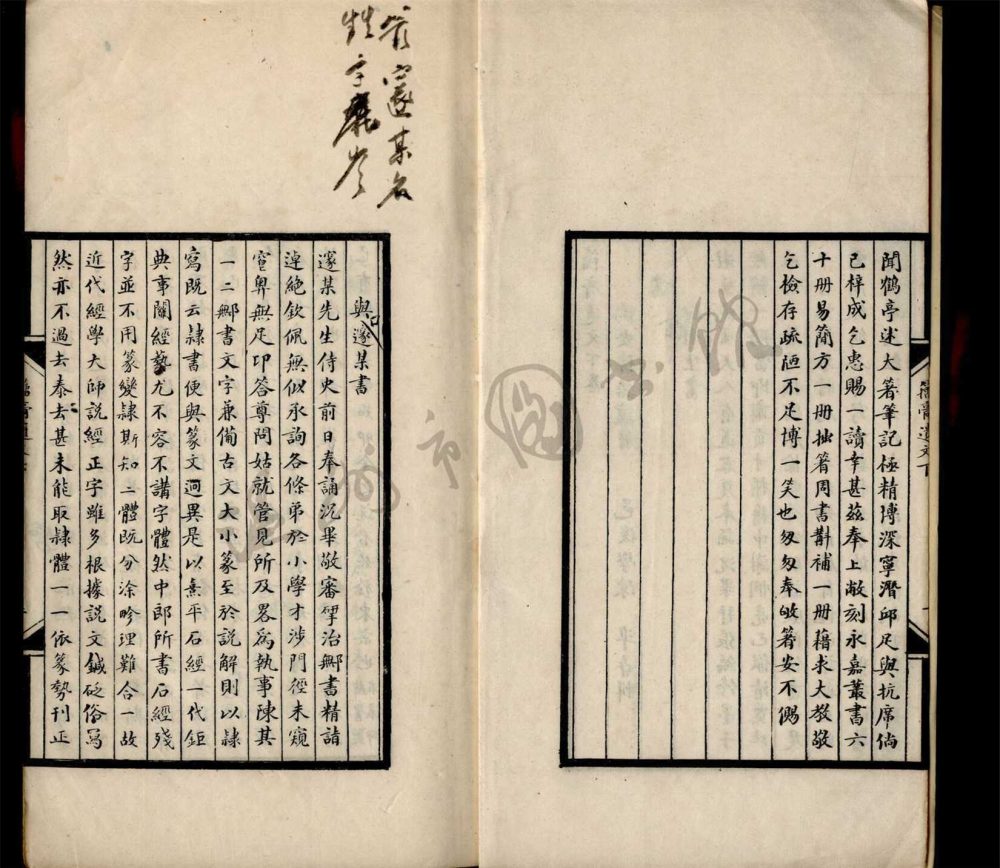 聞鶴亭述大著筆記極精博深寧潛邱足與抗席倘
已梓成乞惠賜一讀幸甚茲奉上敝刻永嘉叢書六
十册易簡方一册拙箸周書斠補一册藉求大教敬
乞檢存疏陋不足博一笑也匆匆奉敂箸安不偒
籀膏遺文下
與邃某書
邃某先生侍史前日奉誦況畢敬審揅治鄦書精詣
淖絶欽佩無似承詢各條弟於小學才涉門徑未窺
窔奧無足卬答尊問姑就管見所及畧爲執事陳其
一二鄦書文字兼備古文大小篆至於説解則以隸
寫既云隸書便與篆文迥異是以熹平石經一代鉅
典事關經藝尤不容不講字體然中郎所書石經殘
字並不用篆變隸斯知二體既分涂畛理難合一故
近代經學大師説經正字雖多根據説文鍼砭俗寫
然亦不過去泰去甚未能取隸體一一依篆勢刊正
邃某名
字
温州市圖書館